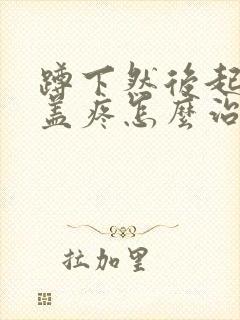 蹲下然後起
盖疼怎麼治
拉加里